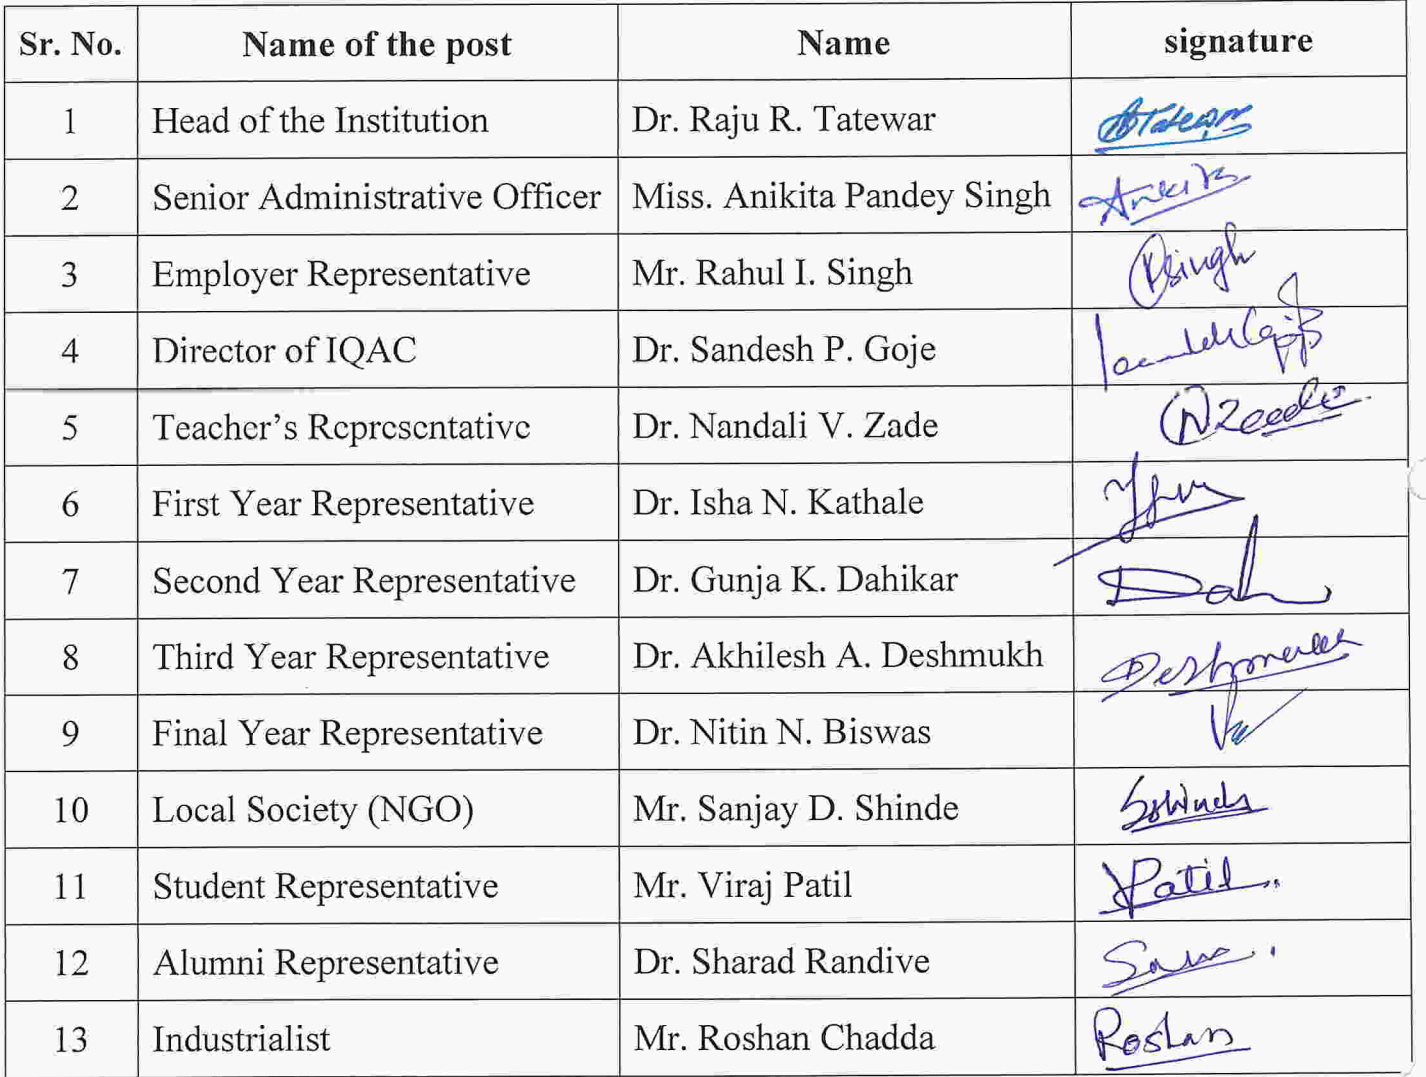 Sr. No. Name of the post Name signature
1 Head of the Institution Dr. Raju R. Tatewar Tatewar
2 Senior Administrative Officer Miss. Anikita Pandey Singh Ankita
3 Employer Representative Mr. Rahul I. Singh Rsingh
4 Director of IQAC Dr. Sandesh P. Goje
5 Teacher's Representative Dr. Nandali V. Zade
6 First Year Representative Dr. Isha N. Kathale
7 Second Year Representative Dr. Gunja K. Dahikar Dah
8 Third Year Representative Dr. Akhilesh A. Deshmukh Deshmukh
9 Final Year Representative Dr. Nitin N. Biswas
10 Local Society (NGO) Mr. Sanjay D. Shinde
11 Student Representative Mr. Viraj Patil VPatil
12 Alumni Representative Dr. Sharad Randive
13 Industrialist Mr. Roshan Chadda Roshan